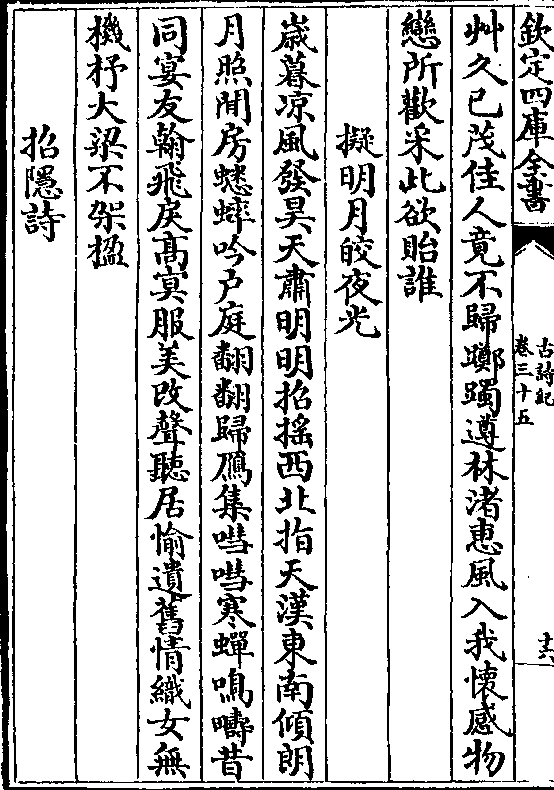 欽定四庫全書
古詩紀
卷三十五
十六
艸久已茂佳人竟不歸躑躅遵林渚惠風入我懷感物
戀所歡采此欲貽誰
擬明月皎夜光
嵗暮凉風發昊天肅明明招搖西北指天漢東南傾朗
月照閒房蟋蟀吟户庭翻翻歸鴈集嘒嘒寒蟬鳴疇昔
同宴友翰飛戾髙㝠服美改聲聽居愉遺舊情織女無
機杼大梁不架楹
招隱詩